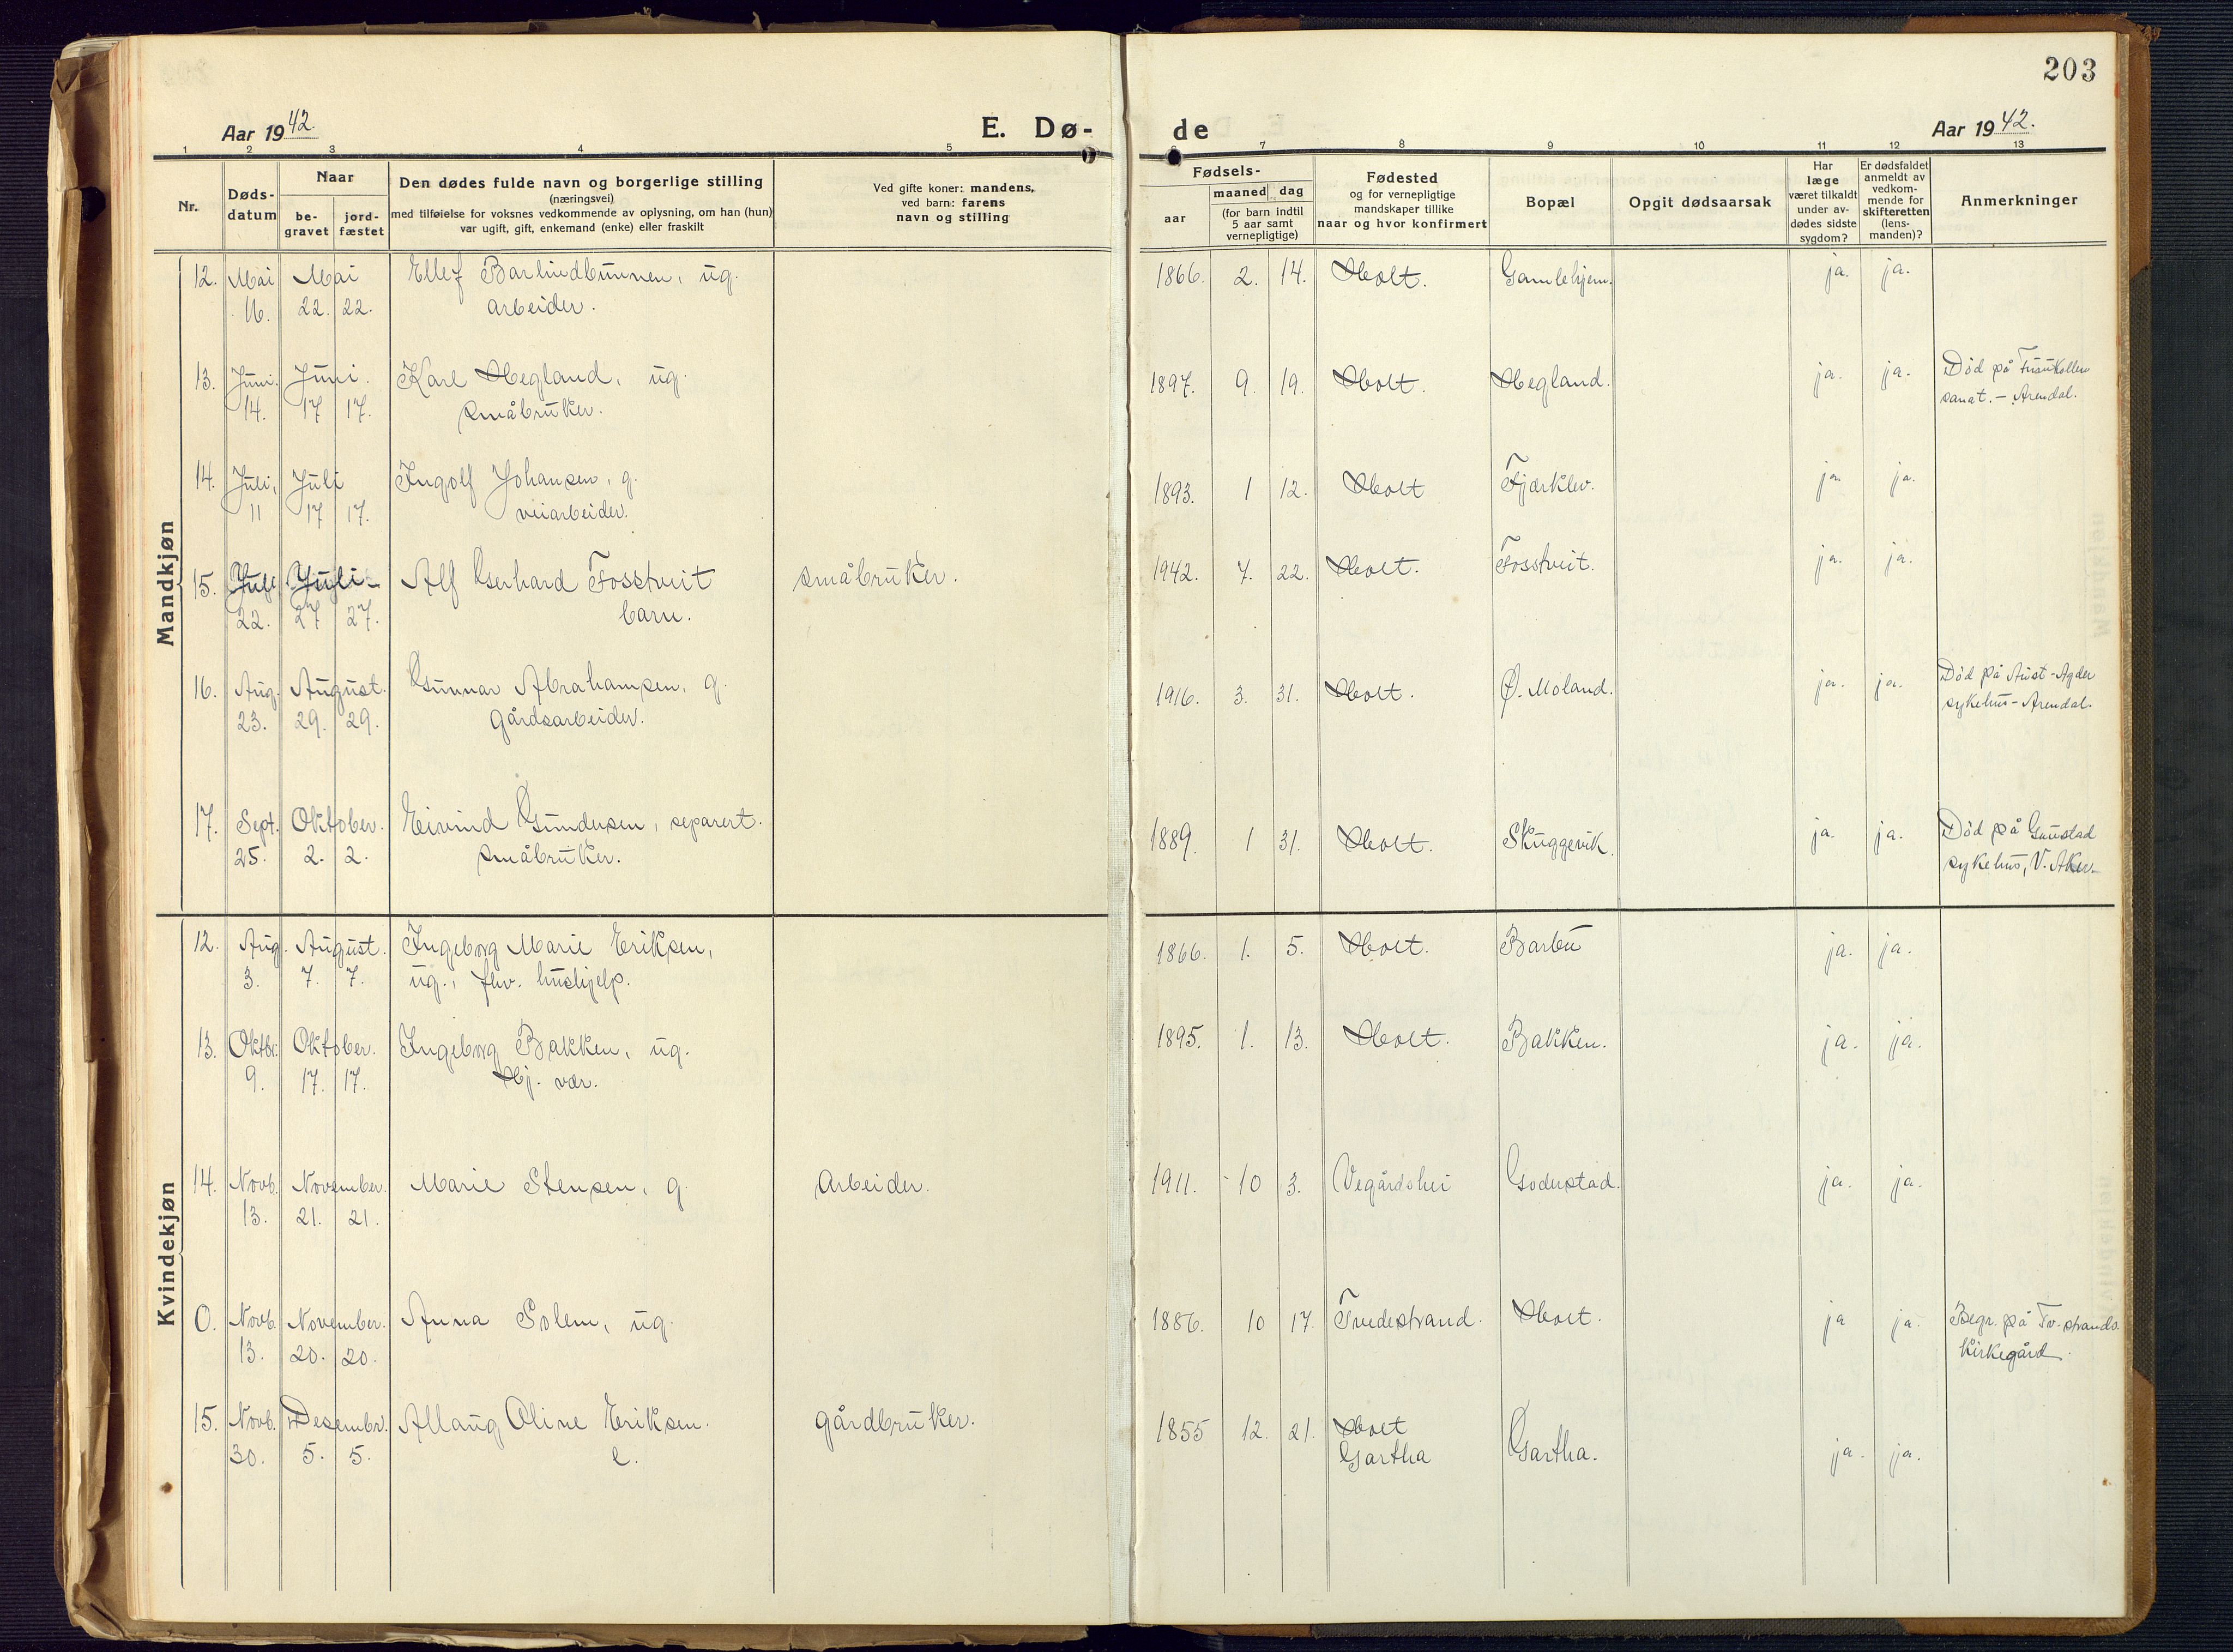 203
Aar 1942.
E. Dø-
de
Aar 1942.
1 2 3 4 5 7 8 9 10 11 12 13
Nr.
Døds-
datum
Naar
be-
gravet
jord-
fæstet
Den dødes fulde navn og borgerlige stilling
(næringsvei)
med tilføielse for voksnes vedkommende av oplysning, om han (hun)
var ugift, gift, enkemand (enke) eller fraskilt
Ved gifte koner: mandens,
ved barn: farens
navn og stilling
Fødsels-
aar
maaned dag
(for barn indtil
5 aar samt
vernepligtige)
Fødested
og for vernepligtige
mandskaper tillike
naar og hvor konfirmert
Bopæl
Opgit dødsaarsak
Har
læge
været tilkaldt
under av-
dødes sidste
sygdom?
Er dødsfaldet
anmeldt av
vedkom-
mende for
skifteretten
(lens-
manden)?
Anmerkninger
Mandkjøn
12. Mai Mai Ellef Barlindbunnen, ug. 1866. 2. 14. Holt. Gamlehjem. ja. ja.
16. 22. 22. arbeider.
13. Juni. Juni. Karl Hegland, ug. 1897. 9. 19. Holt. Hegland. ja. ja. Död på Furukollen
14. 17 17. småbruker. sanat. – Arendal.
14. Juli, Juli Ingolf Johansen, g. 1893. 1 12. Holt Fjærklev. ja. ja.
11 17 17. veiarbeider.
15. Juli Juli Alf Gerhard Fosstveit småbruker. 1942. 7. 22. Holt. Fosstveit. ja. ja.
22. 27 27. barn.
16. Aug. August. Gunnar Abrahamsen, g. 1916. 3. 31. Holt. Ø. Moland. ja. ja. Död på Aust-Agder
23. 29. 29. gårdsarbeider. sykehus – Arendal.
17. Sept. Oktober. Eivind Gundersen, separert. 1889. 1 31. Holt. Skuggevik. ja. ja. Död på Gaustad
25. 2. 2. småbruker. sykehus, V. Aker.
Kvindekjøn
12. Aug. August. Ingeborg Marie Eriksen, 1866. 1. 5. Holt. Barbu ja. ja.
3. 7. 7. ug., fhv. hushjelp.
13. Oktbr. Oktober. Ingeborg Bakken, ug. 1895. 1. 13. Holt. Bakken. ja. ja.
9. 17. 17. Hj. vær.
14. Novb. November. Marie Stensen, g. Arbeider. 1911. 10 3. Vegårdshei Goderstad. ja. ja.
13. 21. 21.
0. Novb. November. Anna Solem, ug. 1886. 10 17. Tvedestrand. Holt. ja ja. Begr. på Tv-strands
13. 20. 20. Kirkegård.
15. Novb. Desembr. Allaug Oline Eriksen. gårdbruker. 1855 12. 21. Holt
30. 5. 5. e. Gartha Gartha. ja. ja.